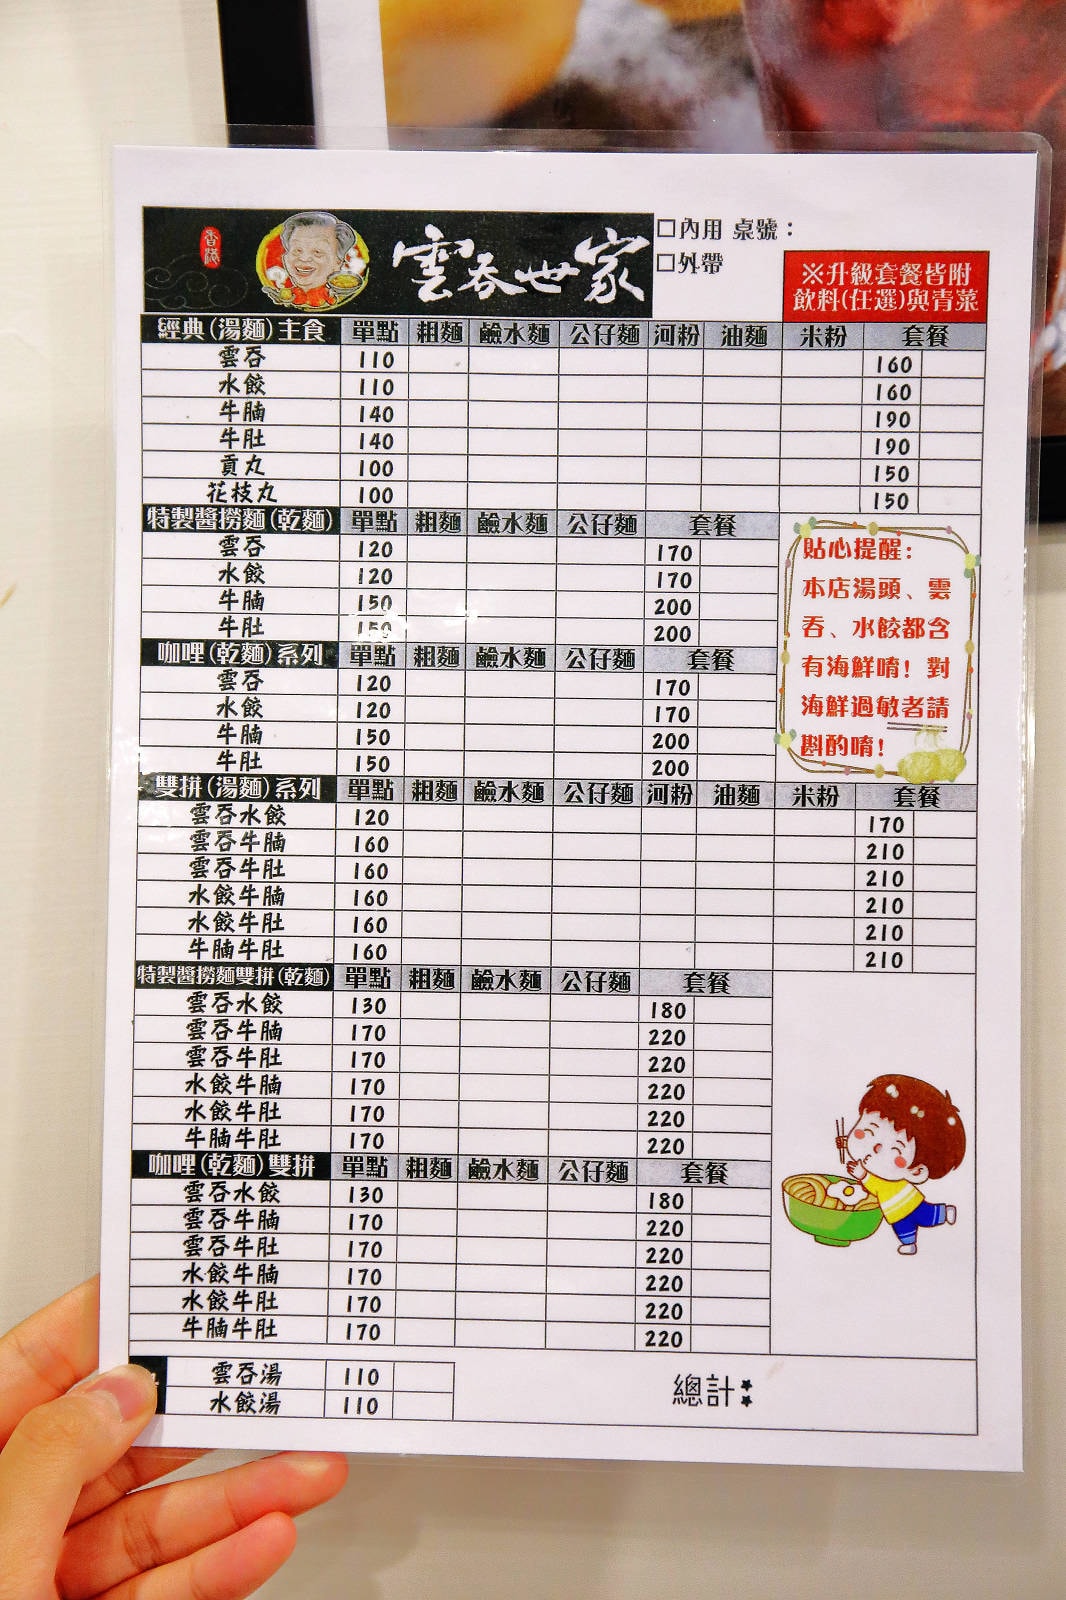 香港
雲吞世家
□內用 桌號：
□外帶
※升級套餐皆附
飲料(任選)與青菜
經典(湯麵)主食 單點 粗麵 鹼水麵 公仔麵 河粉 油麵 米粉 套餐
雲吞 110 160
水餃 110 160
牛腩 140 190
牛肚 140 190
貢丸 100 150
花枝丸 100 150
特製醬撈麵(乾麵) 單點 粗麵 鹼水麵 公仔麵 套餐
雲吞 120 170
水餃 120 170
牛腩 150 200
牛肚 150 200
貼心提醒：
本店湯頭、雲
吞、水餃都含
有海鮮唷！對
海鮮過敏者請
斟酌唷！
咖哩(乾麵)系列 單點 粗麵 鹼水麵 公仔麵 套餐
雲吞 120 170
水餃 120 170
牛腩 150 200
牛肚 150 200
雙拼(湯麵)系列 單點 粗麵 鹼水麵 公仔麵 河粉 油麵 米粉 套餐
雲吞水餃 120 170
雲吞牛腩 160 210
雲吞牛肚 160 210
水餃牛腩 160 210
水餃牛肚 160 210
牛腩牛肚 160 210
特製醬撈麵雙拼(乾麵) 單點 粗麵 鹼水麵 公仔麵 套餐
雲吞水餃 130 180
雲吞牛腩 170 220
雲吞牛肚 170 220
水餃牛腩 170 220
水餃牛肚 170 220
牛腩牛肚 170 220
咖哩(乾麵)雙拼 單點 粗麵 鹼水麵 公仔麵 套餐
雲吞水餃 130 180
雲吞牛腩 170 220
雲吞牛肚 170 220
水餃牛腩 170 220
水餃牛肚 170 220
牛腩牛肚 170 220
雲吞湯 110
水餃湯 110
總計：